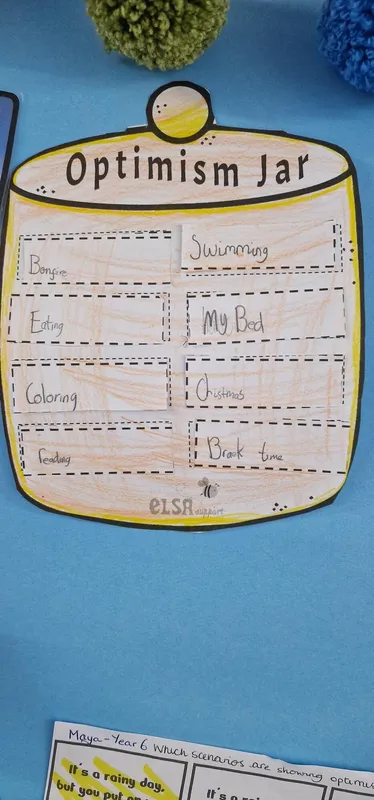 Optimism Jar
Bonfire
Swimming
Eating
My Bed
Coloring
Christmas
Reading
Break time
ELSA support
Maya - Year 6 Which scenarios are showing optimis
It's a rainy day,
but you put on
It's a